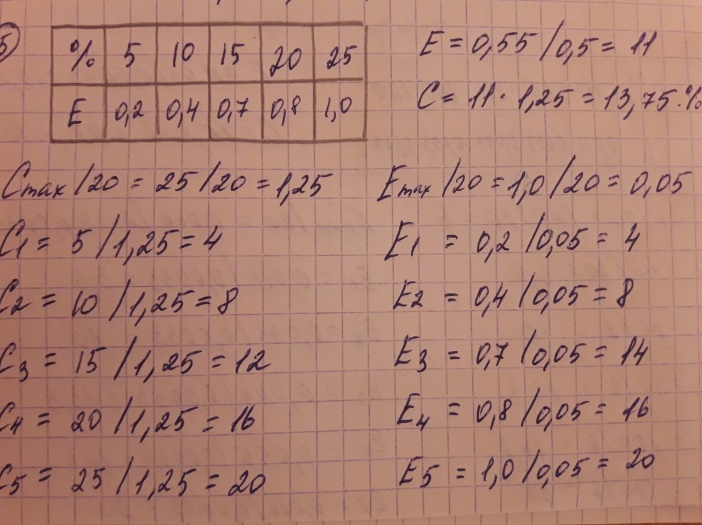 5)
% 5 10 15 20 25
E 0,2 0,4 0,7 0,8 1,0
E = 0,55 / 0,5 = 11
C = 11 · 1,25 = 13,75 %
Cmax / 20 = 25 / 20 = 1,25
C1 = 5 / 1,25 = 4
C2 = 10 / 1,25 = 8
C3 = 15 / 1,25 = 12
C4 = 20 / 1,25 = 16
C5 = 25 / 1,25 = 20
Emax / 20 = 1,0 / 20 = 0,05
E1 = 0,2 / 0,05 = 4
E2 = 0,4 / 0,05 = 8
E3 = 0,7 / 0,05 = 14
E4 = 0,8 / 0,05 = 16
E5 = 1,0 / 0,05 = 20